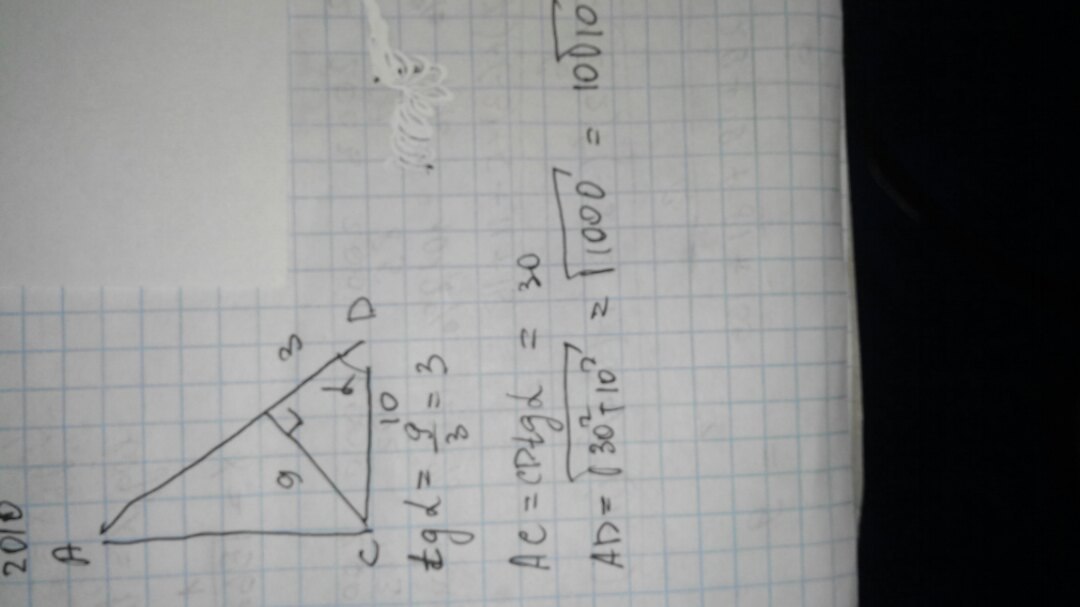 2010
A
3
D
9
α
10
C
tg α = 9/3 = 3
AC = CD tg α = 30
AD = √30² + 10² = √1000 = 10√10